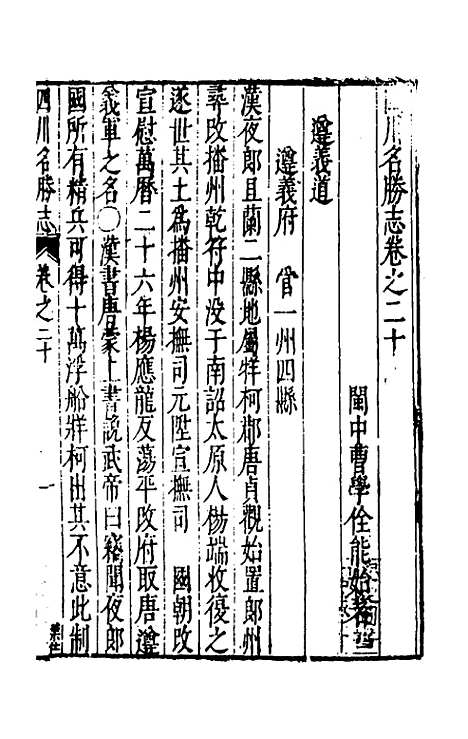 四川名勝志卷之二十
閩中曹學佺能始著
遵義道
遵義府 官一州四縣
漢夜郎且蘭二縣地屬牂柯郡唐貞觀始置郎州
尋改播州乾符中没于南詔太原人楊端收復之
遂世其土為播州安撫司元陞宣撫司 國朝改
宣慰萬曆二十六年楊應龍反蕩平改府取唐遵
義軍之名〇漢書唐蒙上書說武帝曰竊聞夜郎
國所有精兵可得十萬浮船牂柯出其不意此制
四川名勝志 卷之二十 一